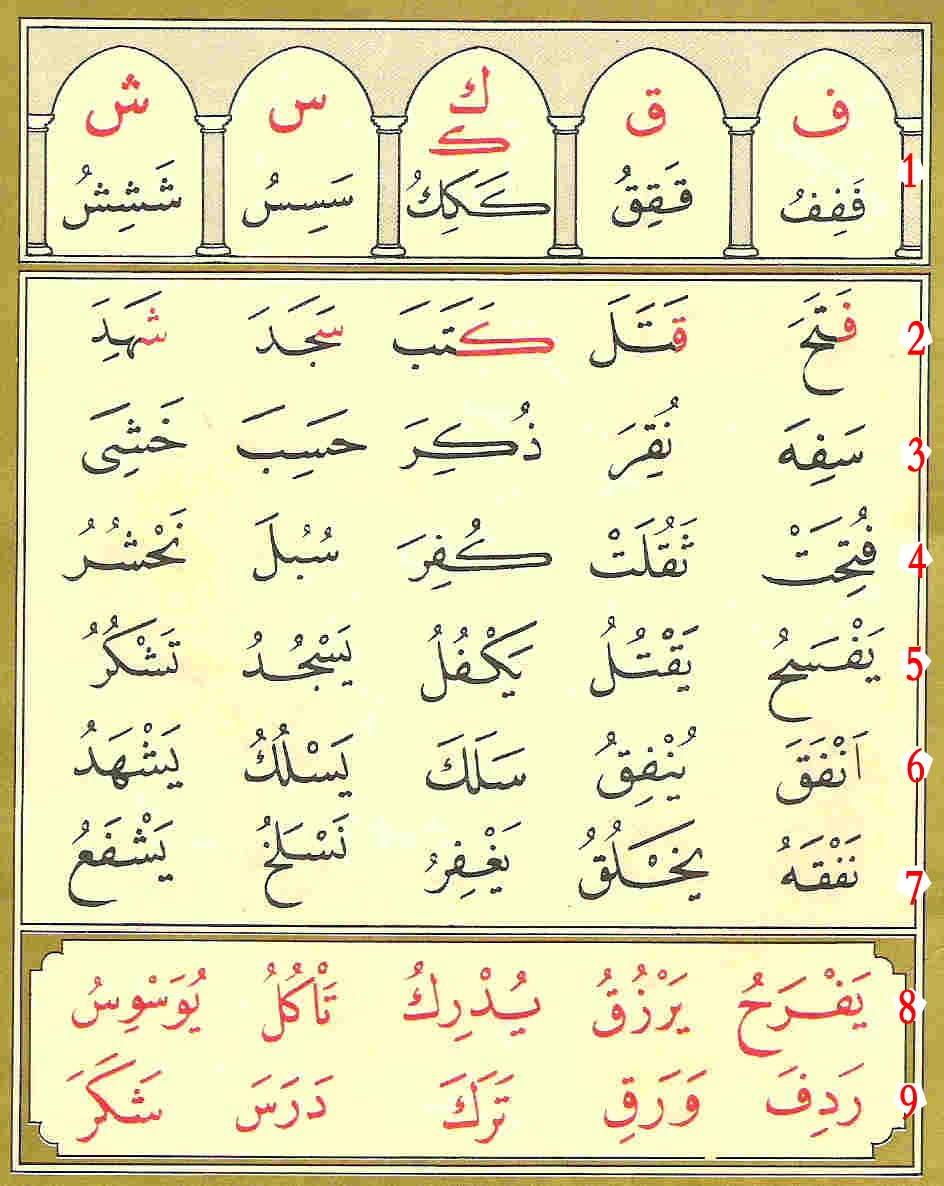 ف ق ك س ش
ك
1 فَفِفُ قَقِقُ كَكِكُ سَسِسُ شَشِشُ
2 فَتَحَ قَتَلَ كَتَبَ سَجَدَ شَهِدَ
3 سَفِهَ نُقِرَ ذُكِرَ حَسِبَ خَشِىَ
4 فُتِحَتْ ثَقُلَتْ كُفِرَ سُبُلَ نَحْشُرُ
5 يَفْسَحُ يَقْتُلُ يَكْفُلُ يَسْجُدُ تَشْكُرُ
6 اَنْفَقَ يُنْفِقُ سَلَكَ يَسْلُكُ يَشْهَدُ
7 نَفْقَهُ يَخْلُقُ يَغْفِرُ نَسْلَخُ يَشْفَعُ
8 يَفْرَحُ يَرْزُقُ يُدْرِكُ تَاْكُلُ يُوَسْوِسُ
9 رَدِفَ وَرَقِ تَرَكَ دَرَسَ شَكَرَ